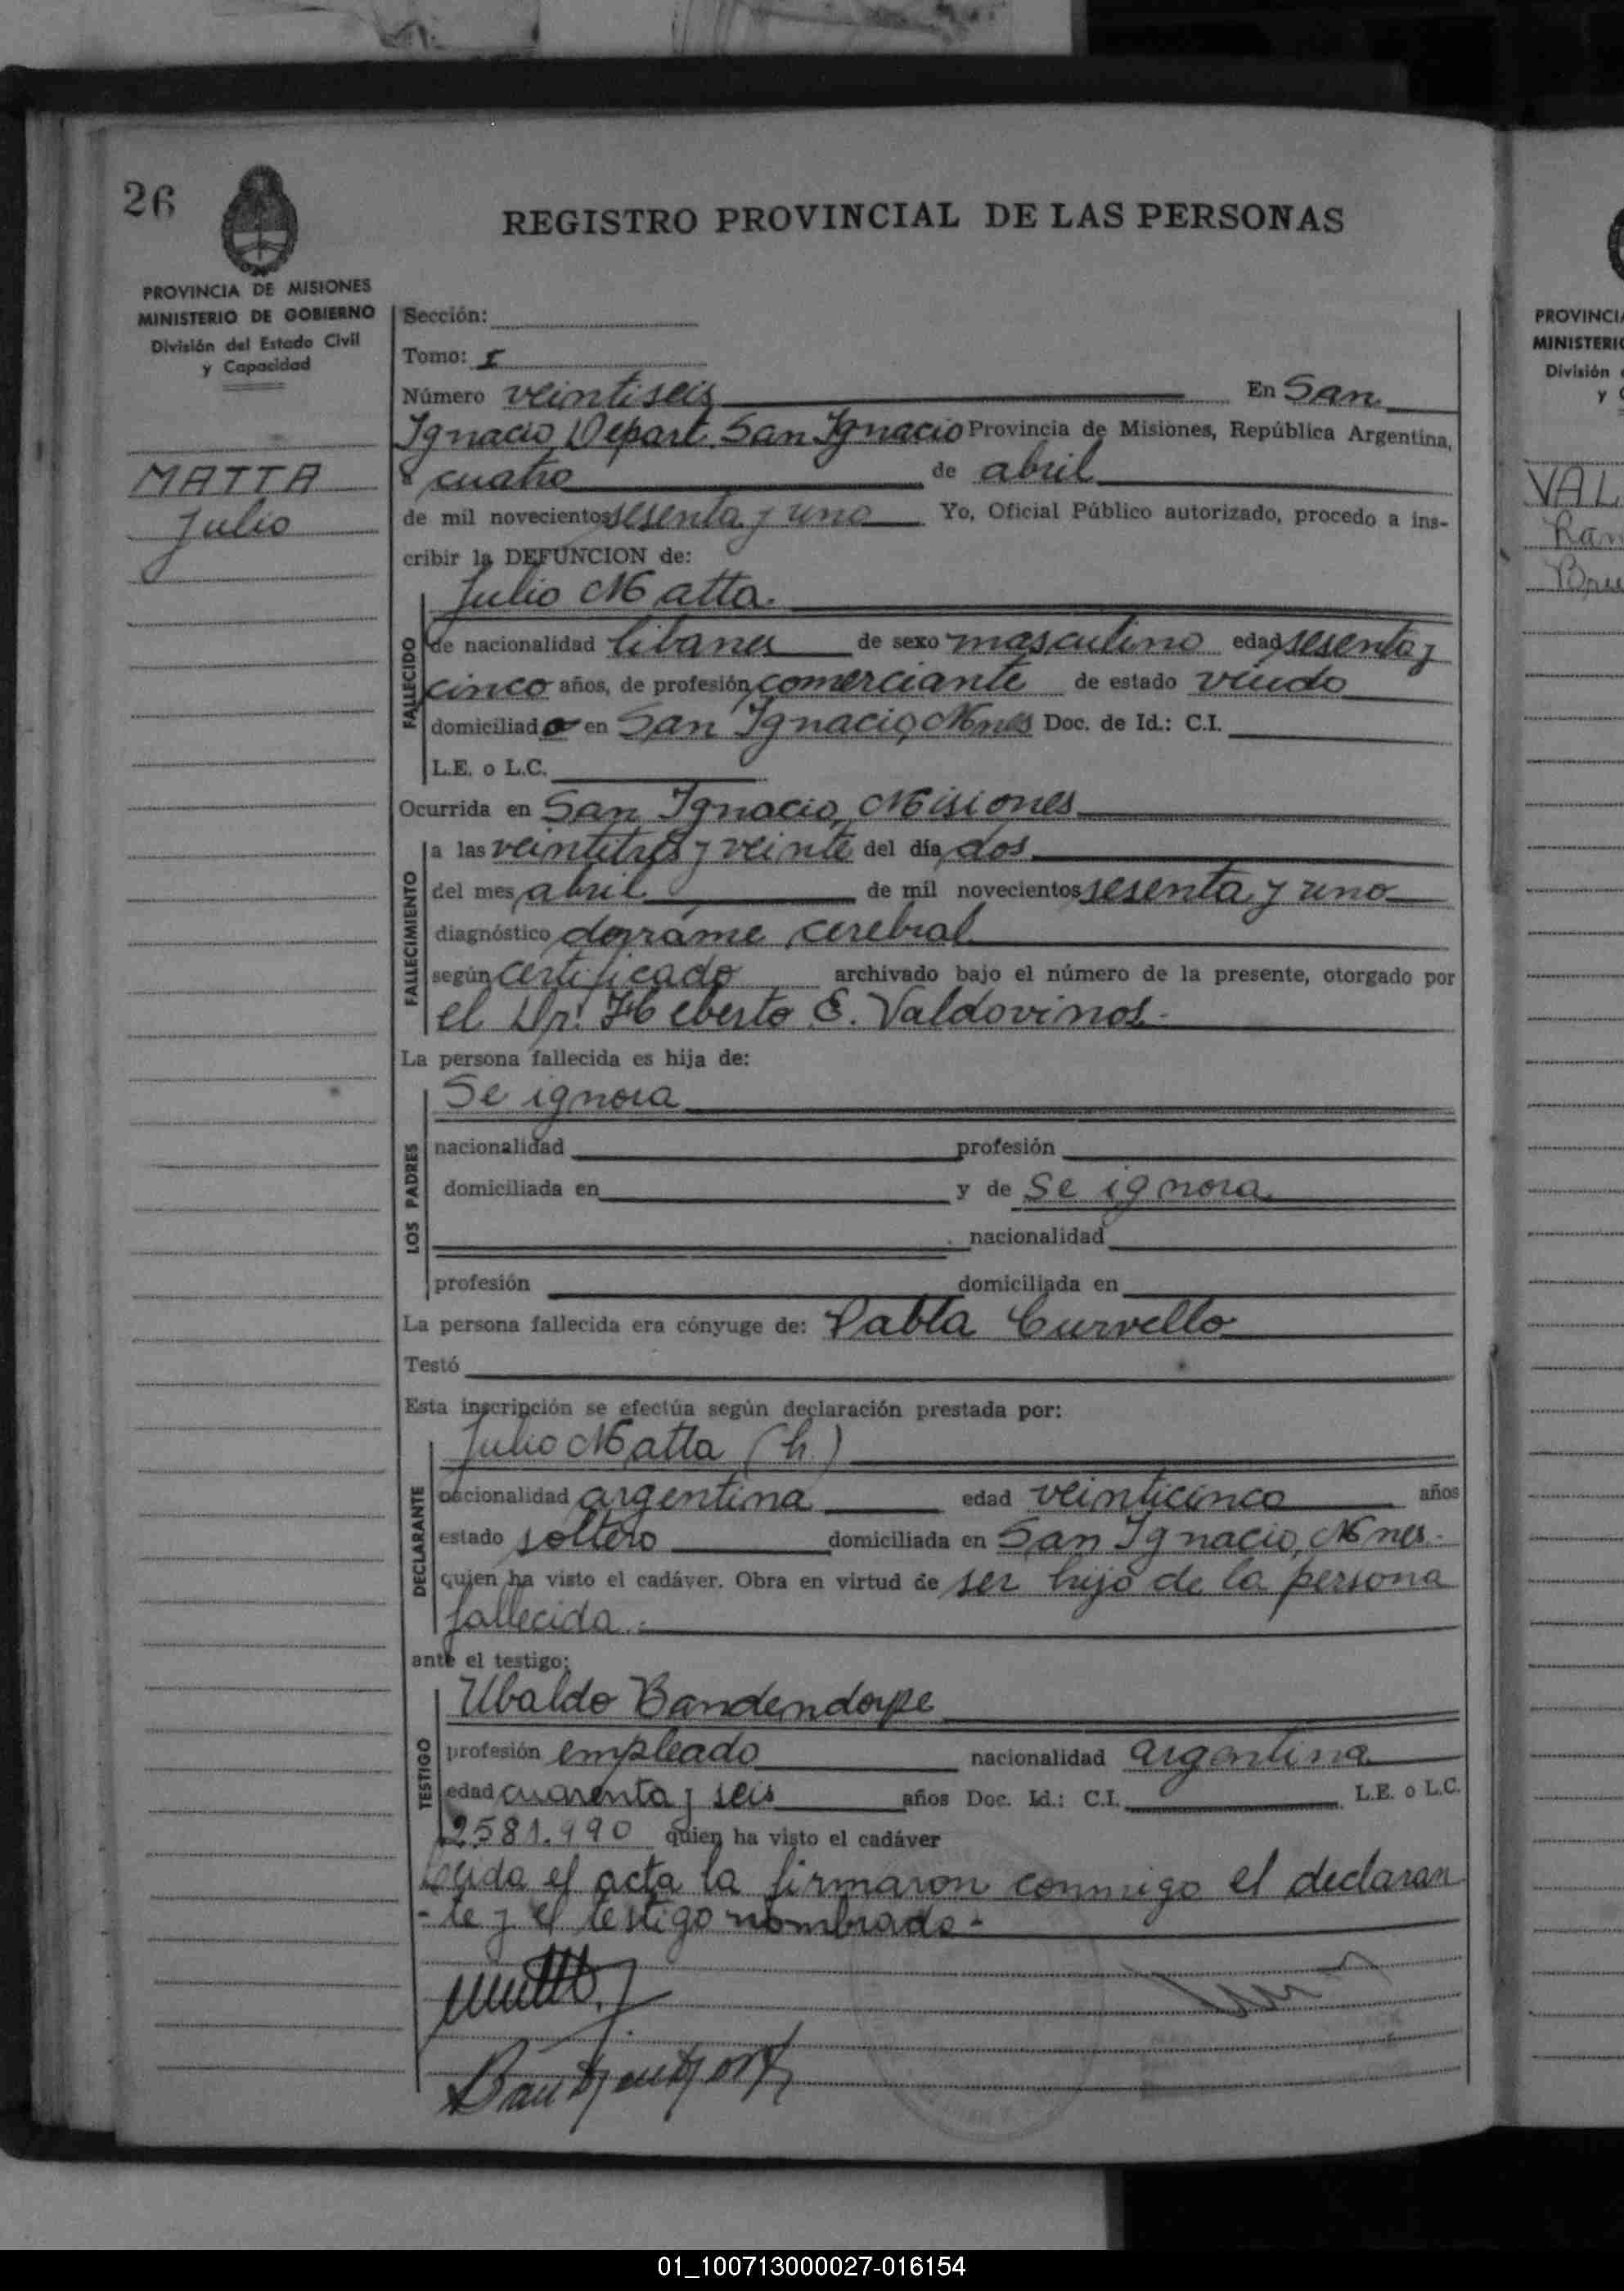 26
REGISTRO PROVINCIAL DE LAS PERSONAS
PROVINCIA DE MISIONES
MINISTERIO DE GOBIERNO
División del Estado Civil
y Capacidad
MATTA
Julio
Sección:
Tomo: I
Número veintiseis En San
Ignacio, Depart. San Ignacio Provincia de Misiones, República Argentina,
a cuatro de abril
de mil novecientos sesenta y uno Yo, Oficial Público autorizado, procedo a ins-
cribir la DEFUNCION de:
Julio Matta.
FALLECIDO
de nacionalidad libanes de sexo masculino edad sesenta y
cinco años, de profesión comerciante de estado viudo
domiciliado en San Ignacio, Mnes Doc. de Id.: C.I.
L.E. o L.C.
Ocurrida en San Ignacio, Misiones
FALLECIMIENTO
a las veintitres y veinte del día dos
del mes abril de mil novecientos sesenta y uno
diagnóstico derrame cerebral
según certificado archivado bajo el número de la presente, otorgado por
el Dr. Heberto E. Valdovinos.-
La persona fallecida es hija de:
LOS PADRES
Se ignora
nacionalidad profesión
domiciliada en y de Se ignora
nacionalidad
profesión domiciliada en
La persona fallecida era cónyuge de: Pabla Curvello
Testó
Esta inscripción se efectúa según declaración prestada por:
DECLARANTE
Julio Matta (h.)
nacionalidad argentina edad veinticinco años
estado soltero domiciliada en San Ignacio, Mnes.-
quien ha visto el cadáver. Obra en virtud de ser hijo de la persona
fallecida.-
ante el testigo:
TESTIGO
Ubaldo Bandendorpe
profesión empleado nacionalidad argentina
edad cuarenta y seis años Doc. Id.: C.I. L.E. o L.C.
2581.990 quien ha visto el cadáver
Leida el acta la firmaron conmigo el declaran
-te y el testigo nombrado-
PROVINCIA
MINISTERIO
División
y
VAL
Ram
01_100713000027-016154